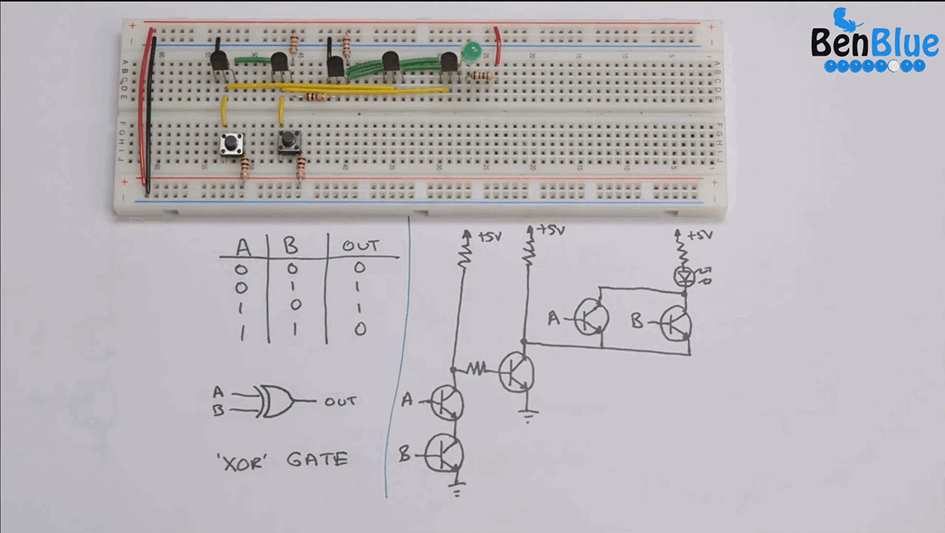 BenBlue
A B OUT
0 0 0
0 1 1
1 0 1
1 1 0
A
B
OUT
'XOR' GATE
+5V
+5V
+5V
A
B
A
B